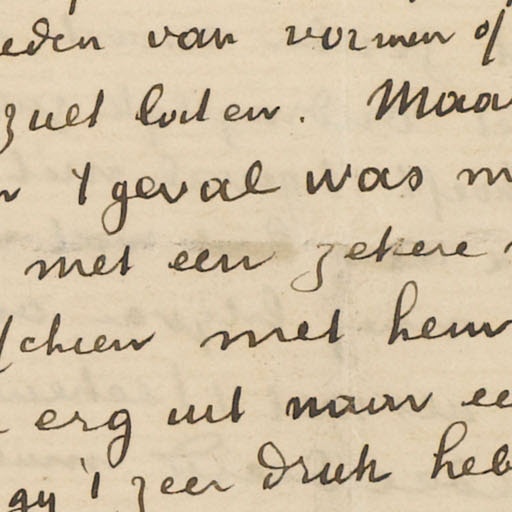 eden van vormen of
zult laten. Maar
n 't geval was m
met een zekere
schien met hem
erg uit naar ee
gij 't zeer druk heb